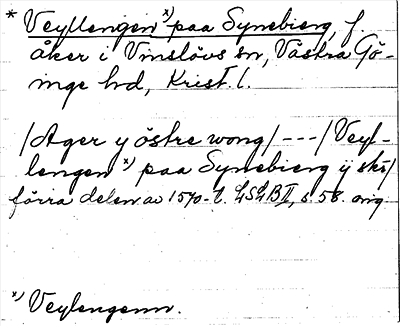 * Veyllengen x) paa Synebierg, f.
åker i Vinslövs sn, Västra Gö-
inge hd, Krist. l.
/Ager y östre wong/ --- /Veyl-
lengen x) paa Synebierg ij sk/
förra delen av 1570-t. LSLB II, s. 58. orig.
x) Veylengenn.